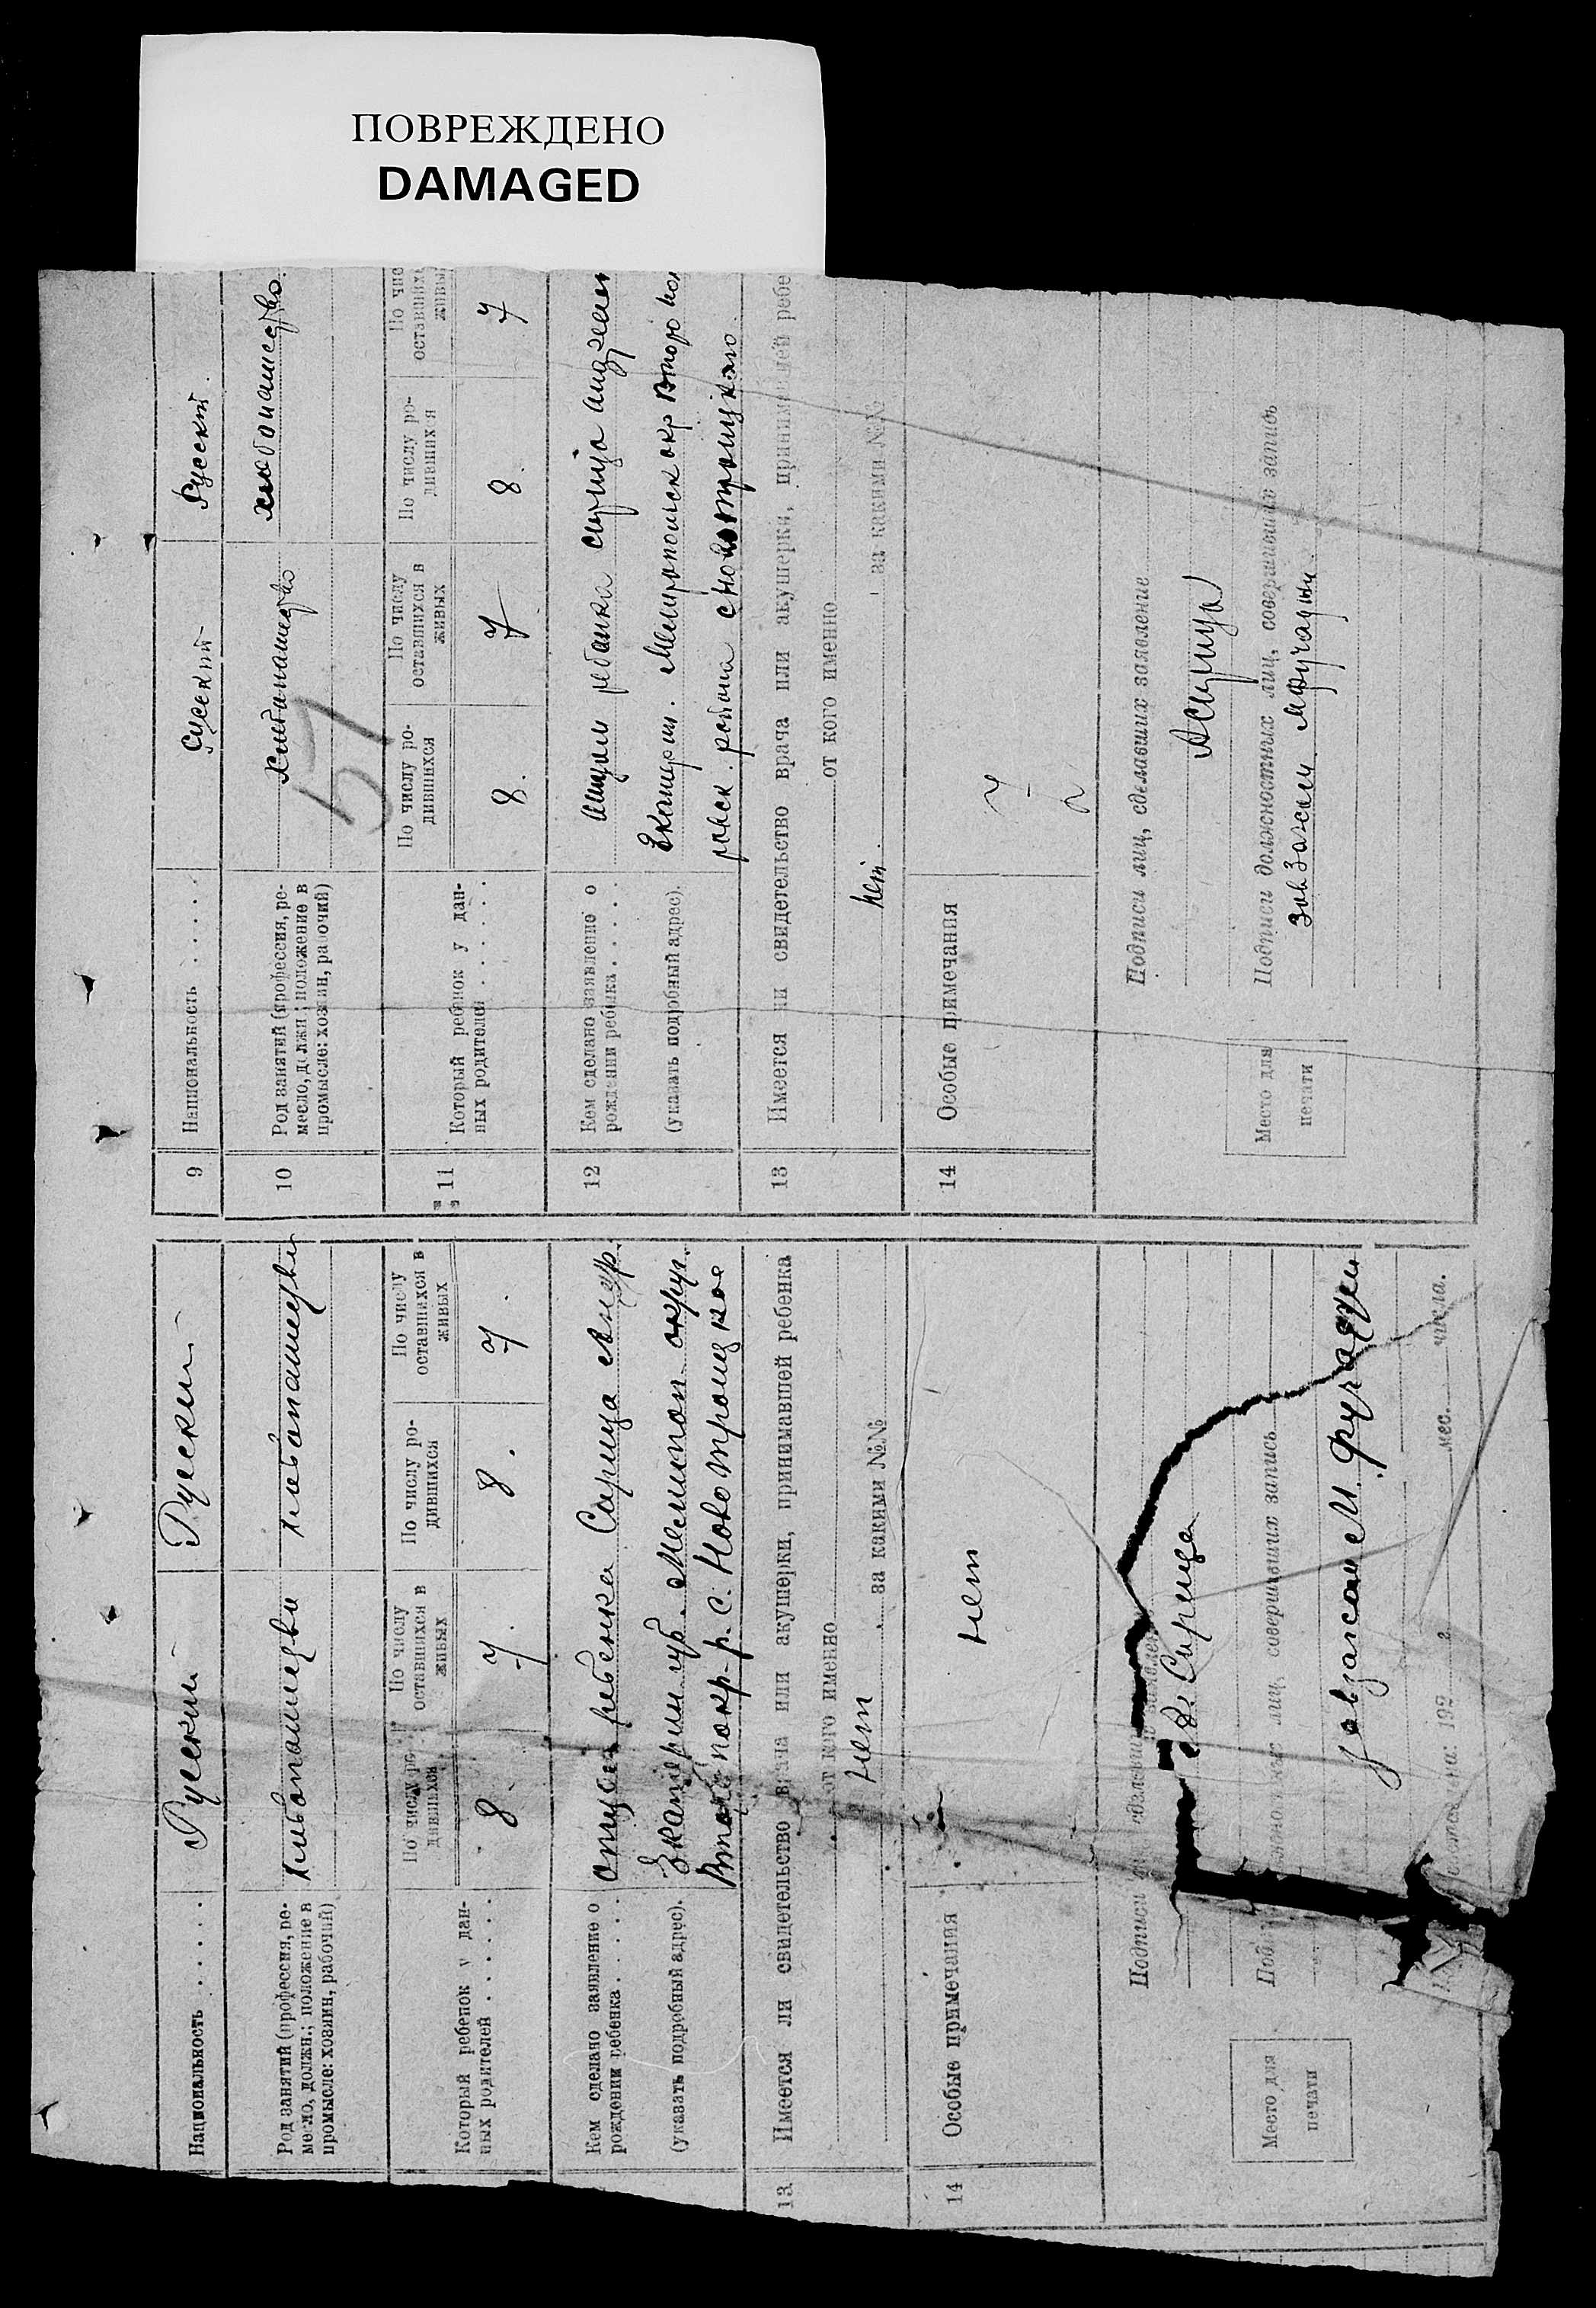 ПОВРЕЖДЕНО
DAMAGED
Национальность . . . . .
Русский
Русский
Род занятий (профессия, ре-
месло, должн.; положение в
промысле: хозяин, рабочий)
хлебопашецтви
хлебопашецтви
Который ребенок у дан-
ных родителей . . . . . .
По числу ро-
дившихся
По числу
оставшихся в
живых
По числу ро-
дившихся
По числу
оставшихся в
живых
8
7.
8.
7.
Кем сделано заявление о
рождении ребенка . . . . .
(указать подробный адрес).
отцем ребенка Сирица Андр.
Екатерин. губ. Мелитоп. округ.
Второ покр-р. с. Новотроицкое
13
Имеется ли свидетельство врача или акушерки, принимавшей ребенка
от кого именно
нет
за какими №№
14
Особые примечания
нет
Подписи
заявление
А. Сирица
Место для
печати
лиц, совершивших запись
Завзагсом М.
192 г. мес. числа.
9
Национальность . . . . .
Русский
Русский
10
Род занятий (профессия, ре-
месло, должн; положение в
промысле: хозяин, рабочий)
57
11
Который ребенок у дан-
ных родителей . . . . . .
По числу ро-
дившихся
По числу
оставшихся в
живых
По числу ро-
дившихся
По чис
оставшихс
живы
8.
7
8.
7
12
Кем сделано заявление о
рождении ребенка . . . . .
(указать подробный адрес).
отцом ребенка Сирица
Екатерин. Мелитопольск окр Второ
района с новотроицкаго.
13
Имеется ли свидетельство врача или акушерки, принимавшей ребе
от кого именно
нет.
за какими №№
14
Особые примечания
Подписи лиц, сделавших заявление
А Сирица
Место для
печати
Подписи должностных лиц, совершивших запись
зав Загсом